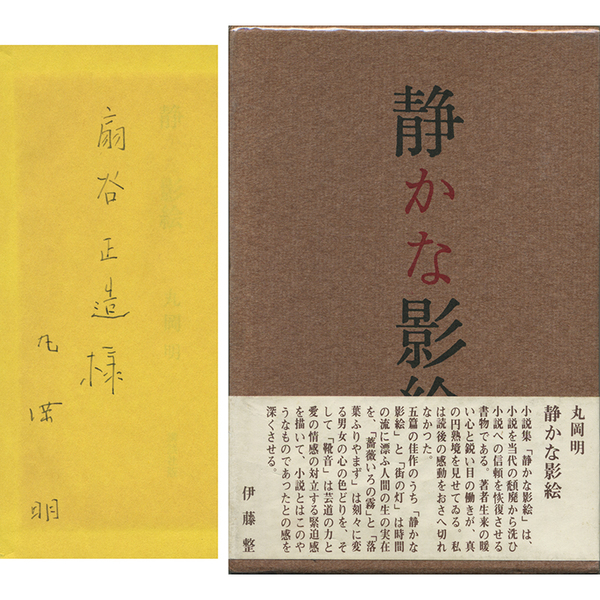 扇谷正造様
丸岡明
静かな影絵
丸岡明
静かな影絵
小説集「静かな影絵」は、
小説を当代の頽廃から洗ひ
小説への信頼を恢復させる
書物である。著者生来の暖
い心と鋭い目の働きが、真
の円熟境を見せてゐる。私
は読後の感動をおさへ切れ
なかつた。
五篇の佳作のうち「静かな
影絵」と「街の灯」は時間
の流に漂ふ人間の生の実在
を、「薔薇いろの霧」と「落
葉ふりやまず」は刻々に変
る男女の心の色どりを、そ
して「靴音」は芸道の力と
愛の情感の対立する緊迫感
を描いて、小説とはこのや
うなものであつたとの感を
深くさせる。
伊藤整